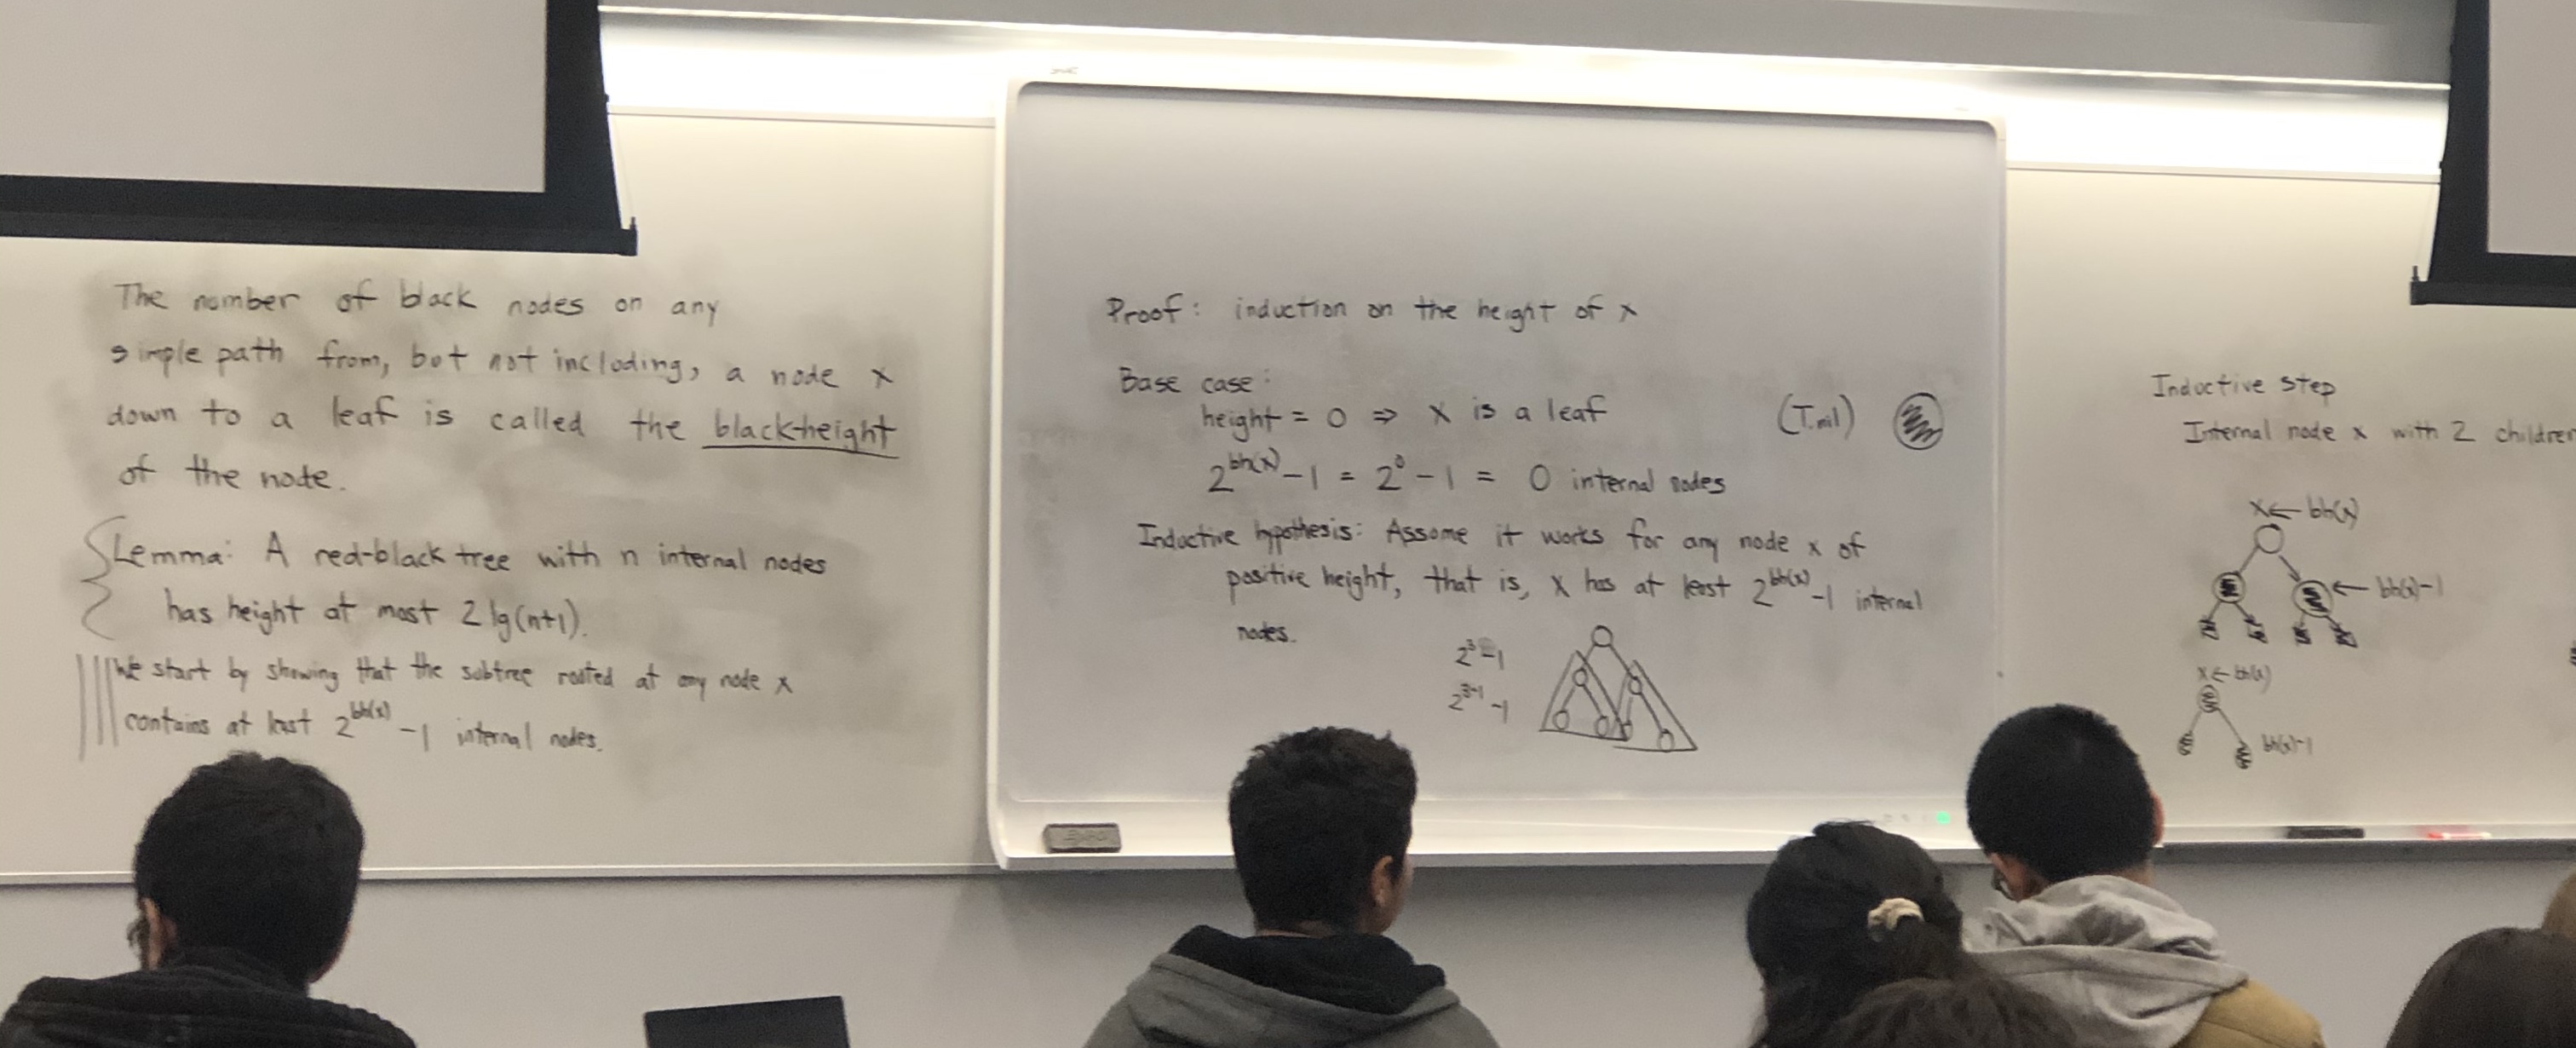 The number of black nodes on any
simple path from, but not including, a node x
down to a leaf is called the black-height
of the node.
Lemma: A red-black tree with n internal nodes
has height at most 2 lg(n+1).
We start by showing that the subtree rooted at any node x
contains at least 2^bh(x) - 1 internal nodes.
Proof: induction on the height of x
Base case:
height = 0 ⇒ x is a leaf (T.nil)
2^bh(x) - 1 = 2^0 - 1 = 0 internal nodes
Inductive hypothesis: Assume it works for any node x of
positive height, that is, x has at least 2^bh(x) - 1 internal
nodes.
2^3 - 1
2^3-1 - 1
Inductive step
Internal node x with 2 children
x ← bh(x)
← bh(x)-1
x ← bh(x)
bh(x)-1